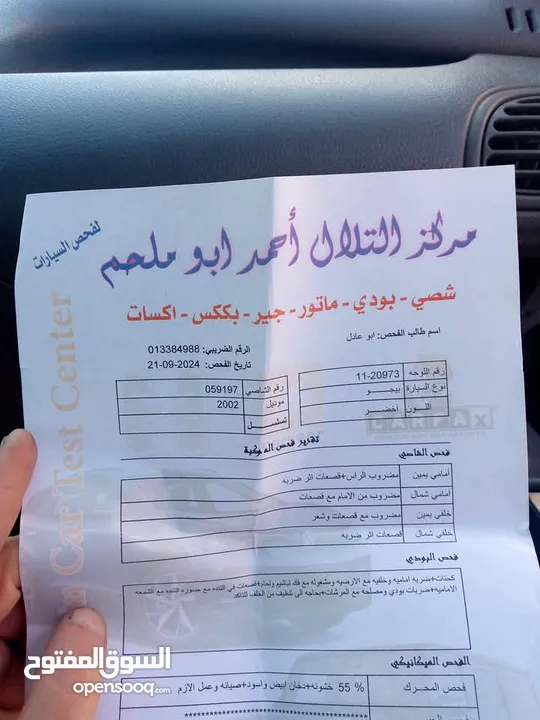 مركز التلال أحمد ابو ملحم
لفحص السيارات
شصي - بودي - ماتور - جير - بككس - اكسات
اسم طالب الفحص: ابو عادل
الرقم الضريبي: 013384988
تاريخ الفحص: 21-09-2024
رقم اللوحه 11-20973
نوع السيارة بيجو
اللون اخضر
رقم الشاصي 059197
موديل 2002
تسلسل
CARFAX
تقرير فحص المركبة
فحص الشاصي
امامي يمين مضروب الراس+قصعات اثر ضربه
امامي شمال مضروب من الامام مع قصعات
خلفي يمين مضروب مع قصعات وشعر
خلفي شمال قصعات اثر ضربه
فحص البودي
كحتات+ضربه اماميه وخلفيه مع الارضيه ومشغوله مع فك تباشيم ولحام+قصعات في التنده مع جسوره التنده مع الشمسه
الاماميه+ضربات بودي ومصلحه مع المرشات+بحاجه الى تنظيف من الخلف للتاكد
الفحص الميكانيكي
فحص المحرك 55 % خشونه+دخان ابيض واسود+صيانه وعمل الازم
********************
Car Test Center
السوق المفتوح
opensooq.com